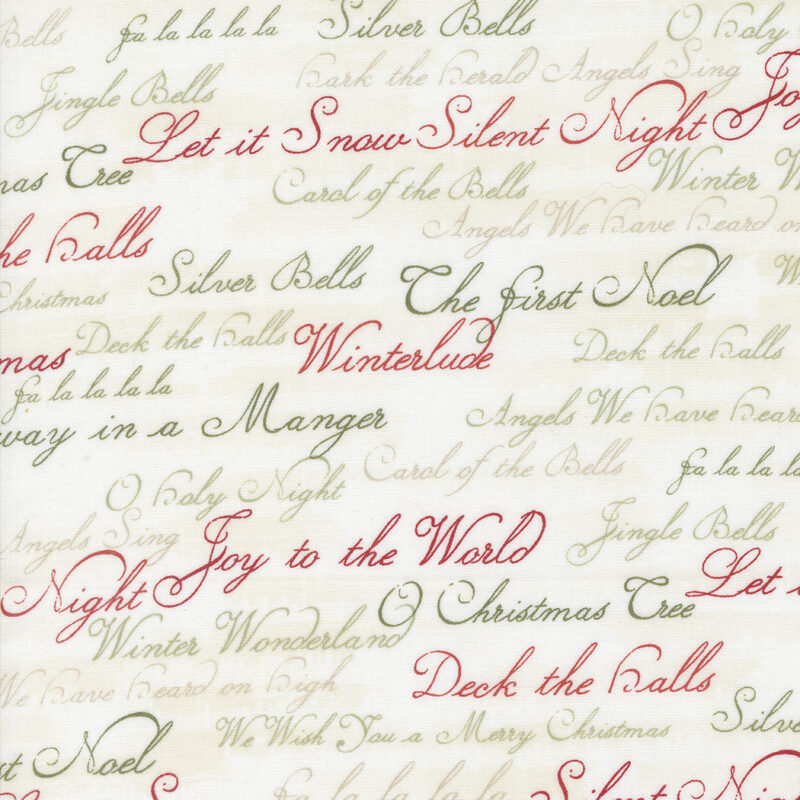 Bells fa la la la la Silver Bells O holy
Jingle Bells hark the herald Angels Sing Joy
Let it Snow Silent Night
mas Tree Carol of the Bells Winter W
the halls Angels We have heard on
Silver Bells The first Noel
Christmas
mas Deck the halls Winterlude Deck the halls
fa la la la la
way in a Manger Angels We have heard
Carol of the Bells fa la la la
O holy Night
Angels Sing Joy to the World Jingle Bells
Night O Christmas Tree Let i
Winter Wonderland
We have heard on high Deck the halls
We Wish You a Merry Christmas Silve
st Noel
fa la la la la Silent Nig